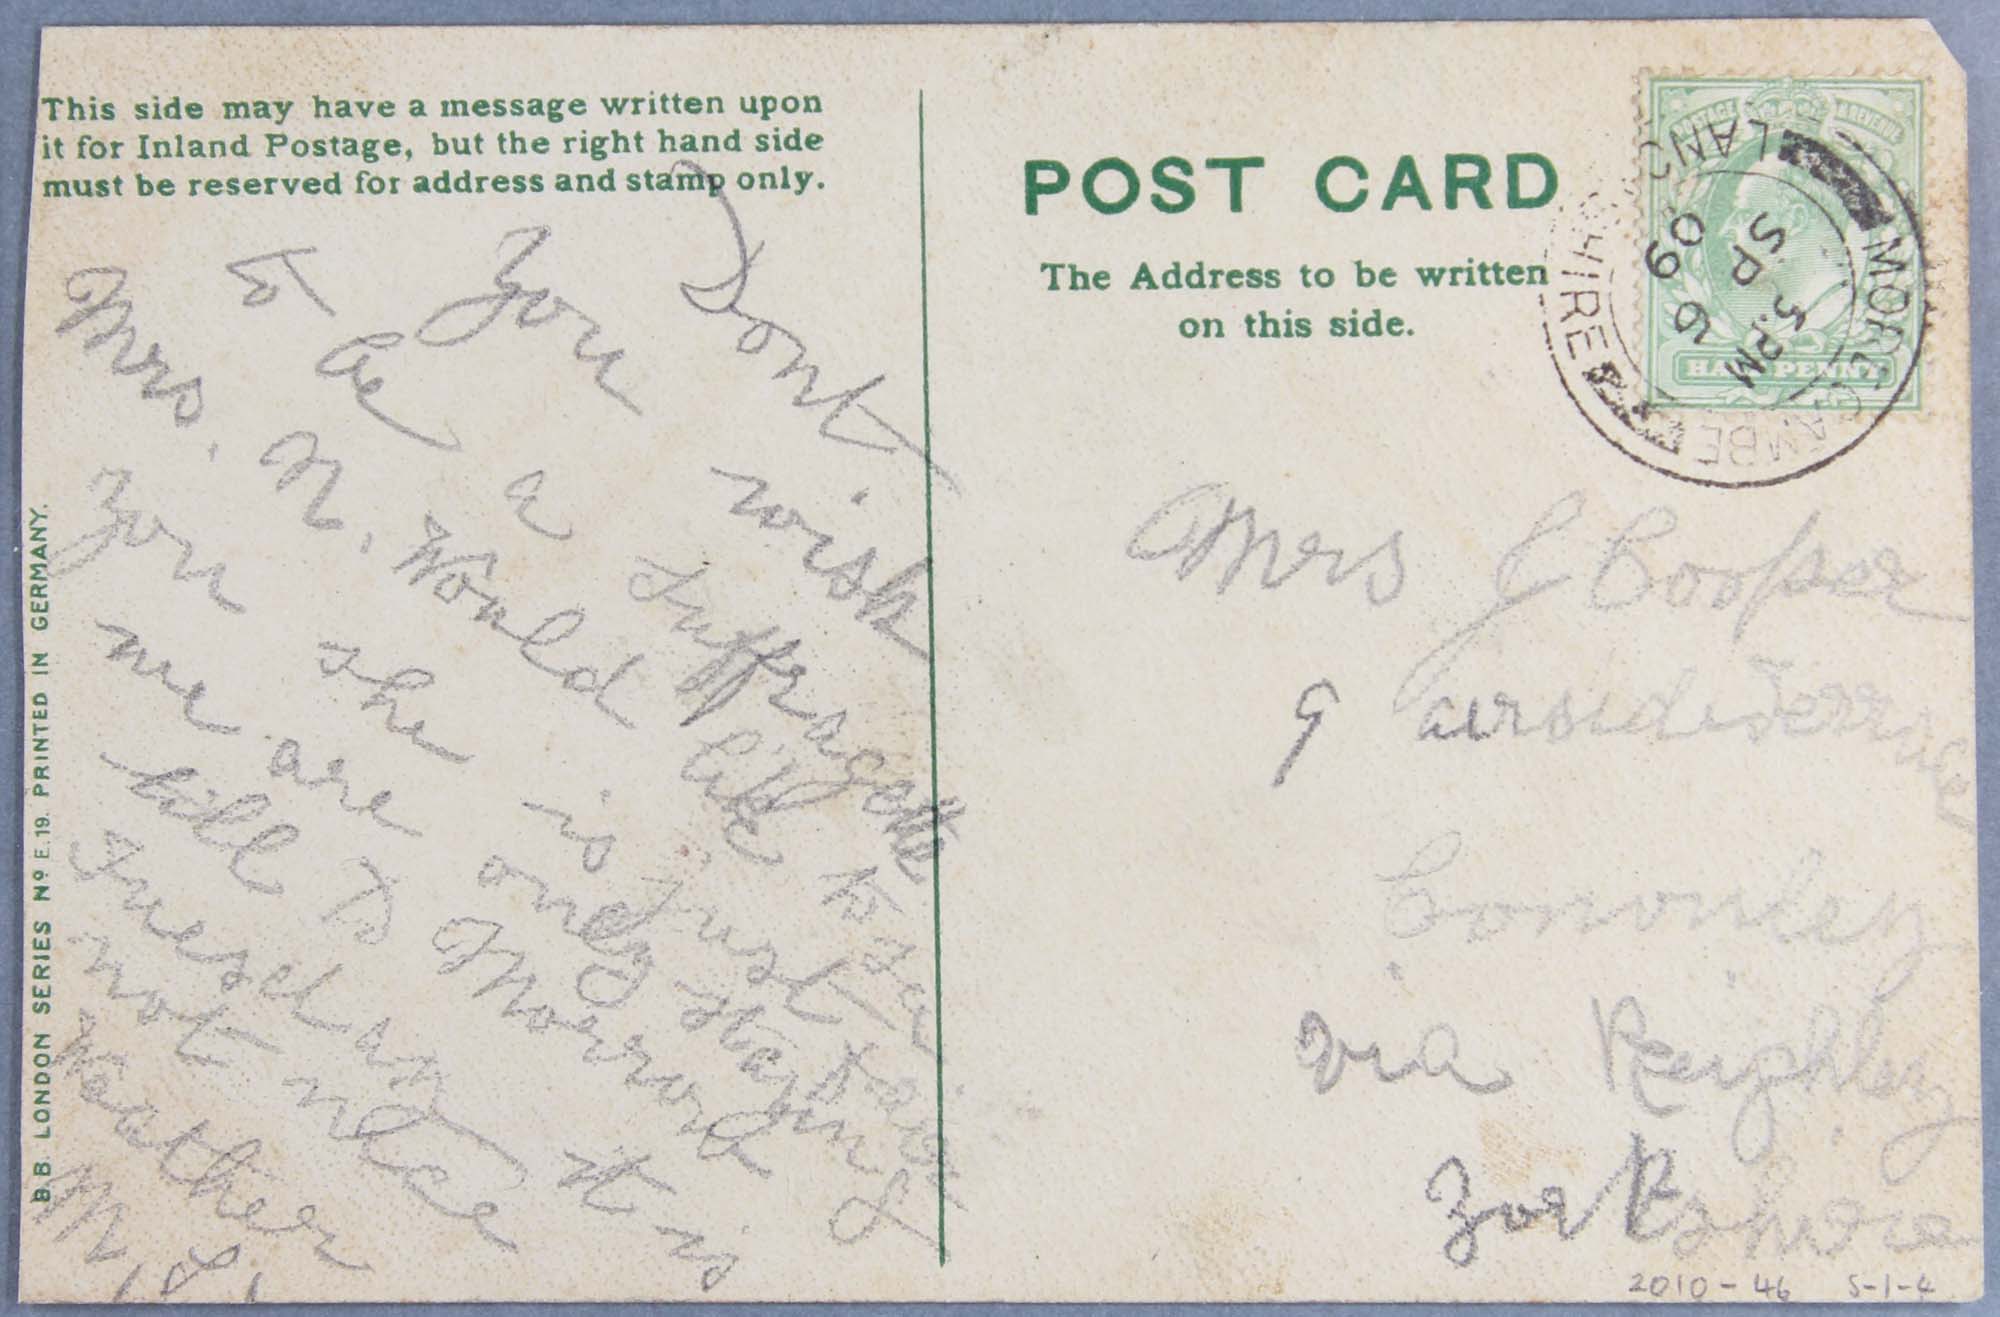 This side may have a message written upon
it for Inland Postage, but the right hand side
must be reserved for address and stamp only.
Dont
you wish
to be a Suffragette
Mrs. N. Would like to see
you she is just
we are only staying
till to Morrow &
Tuesday it is
not nice
Weather
M. S.
B.B. LONDON SERIES No E.19. PRINTED IN GERMANY.
POST CARD
The Address to be written
on this side.
POSTAGE REVENUE
HALF PENNY
MORECAMBE
LANCASHIRE
5.PM
SP 6
09
Mrs J Cooper
9 airside Terrace
Cononley
via Keighley
Yorkshire
2010-46 S-1-4